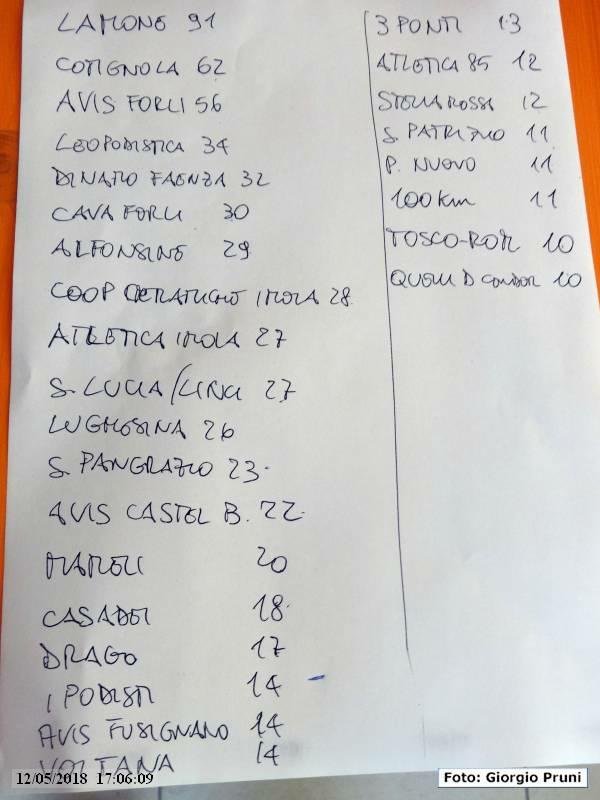 LAMONE 91
COTIGNOLA 62
AVIS FORLI 56
LEOPODISTICA 34
DINAMO FAENZA 32
CAVA FORLI 30
ALFONSINE 29
COOP CERAMICHE IMOLA 28
ATLETICA IMOLA 27
S. LUCIA/LINCI 27
LUGHESINA 26
S. PANCRAZIO 23.
AVIS CASTEL B. 22.
MAMELI 20
CASADEI 18.
DRAGO 17
I PODISTI 14 -
AVIS FUSIGNANO 14
VOLTANA 14
3 PONTI 13
ATLETICA 85 12
STELLA ROSSA 12
S. PATRIZIO 11
P. NUOVO 11
100 Km 11
TOSCO-ROM 10
QUELLI D CONDOR 10
12/05/2018 17:06:09
Foto: Giorgio Pruni